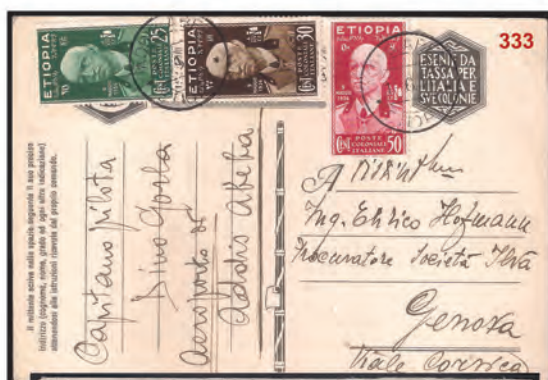 333
ETIOPIA
9 MAGGIO 1936
25 Cent 25
ETIOPIA
9 MAGGIO 1936
30 Cent 30
ETIOPIA
9 MAGGIO 1936
POSTE
COLONIALI
ITALIANE
Cent 50
ESENTE DA
TASSA PER
L'ITALIA E
SVE COLONIE
Il mittente scriva nello spazio seguente il suo preciso
indirizzo (cognome, nome, grado ed ogni altra indicazione)
attenendosi alle istruzioni ricevute dal proprio comando.
Capitano pilota
Dino
Aeroporto di
Addis Abeba
A
Ing. Enrico Hofmann
Procuratore Società Ilva
Genova
Viale Corsica